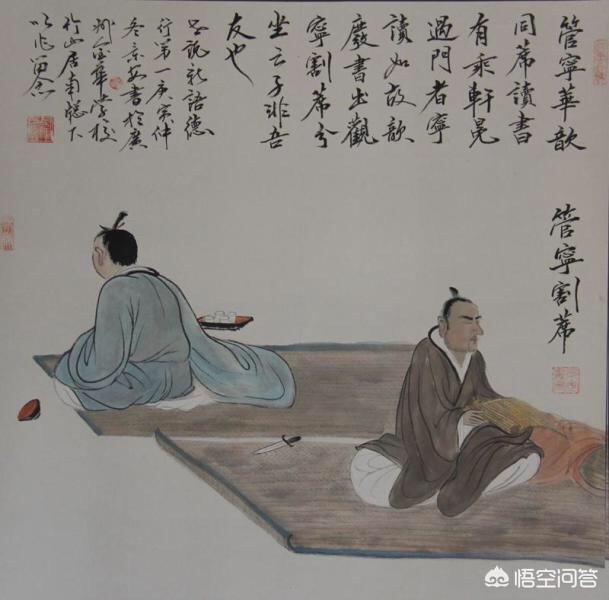 管寧華歆
同席讀書
有乘軒冕
過門者寧
讀如故歆
廢書出觀
寧割席分
坐云子非吾
友也
說新語德
行第一庚寅仲
冬京書於廣
州金華學校
竹山居南窗下
以作留念
管寧割席
悟空问答